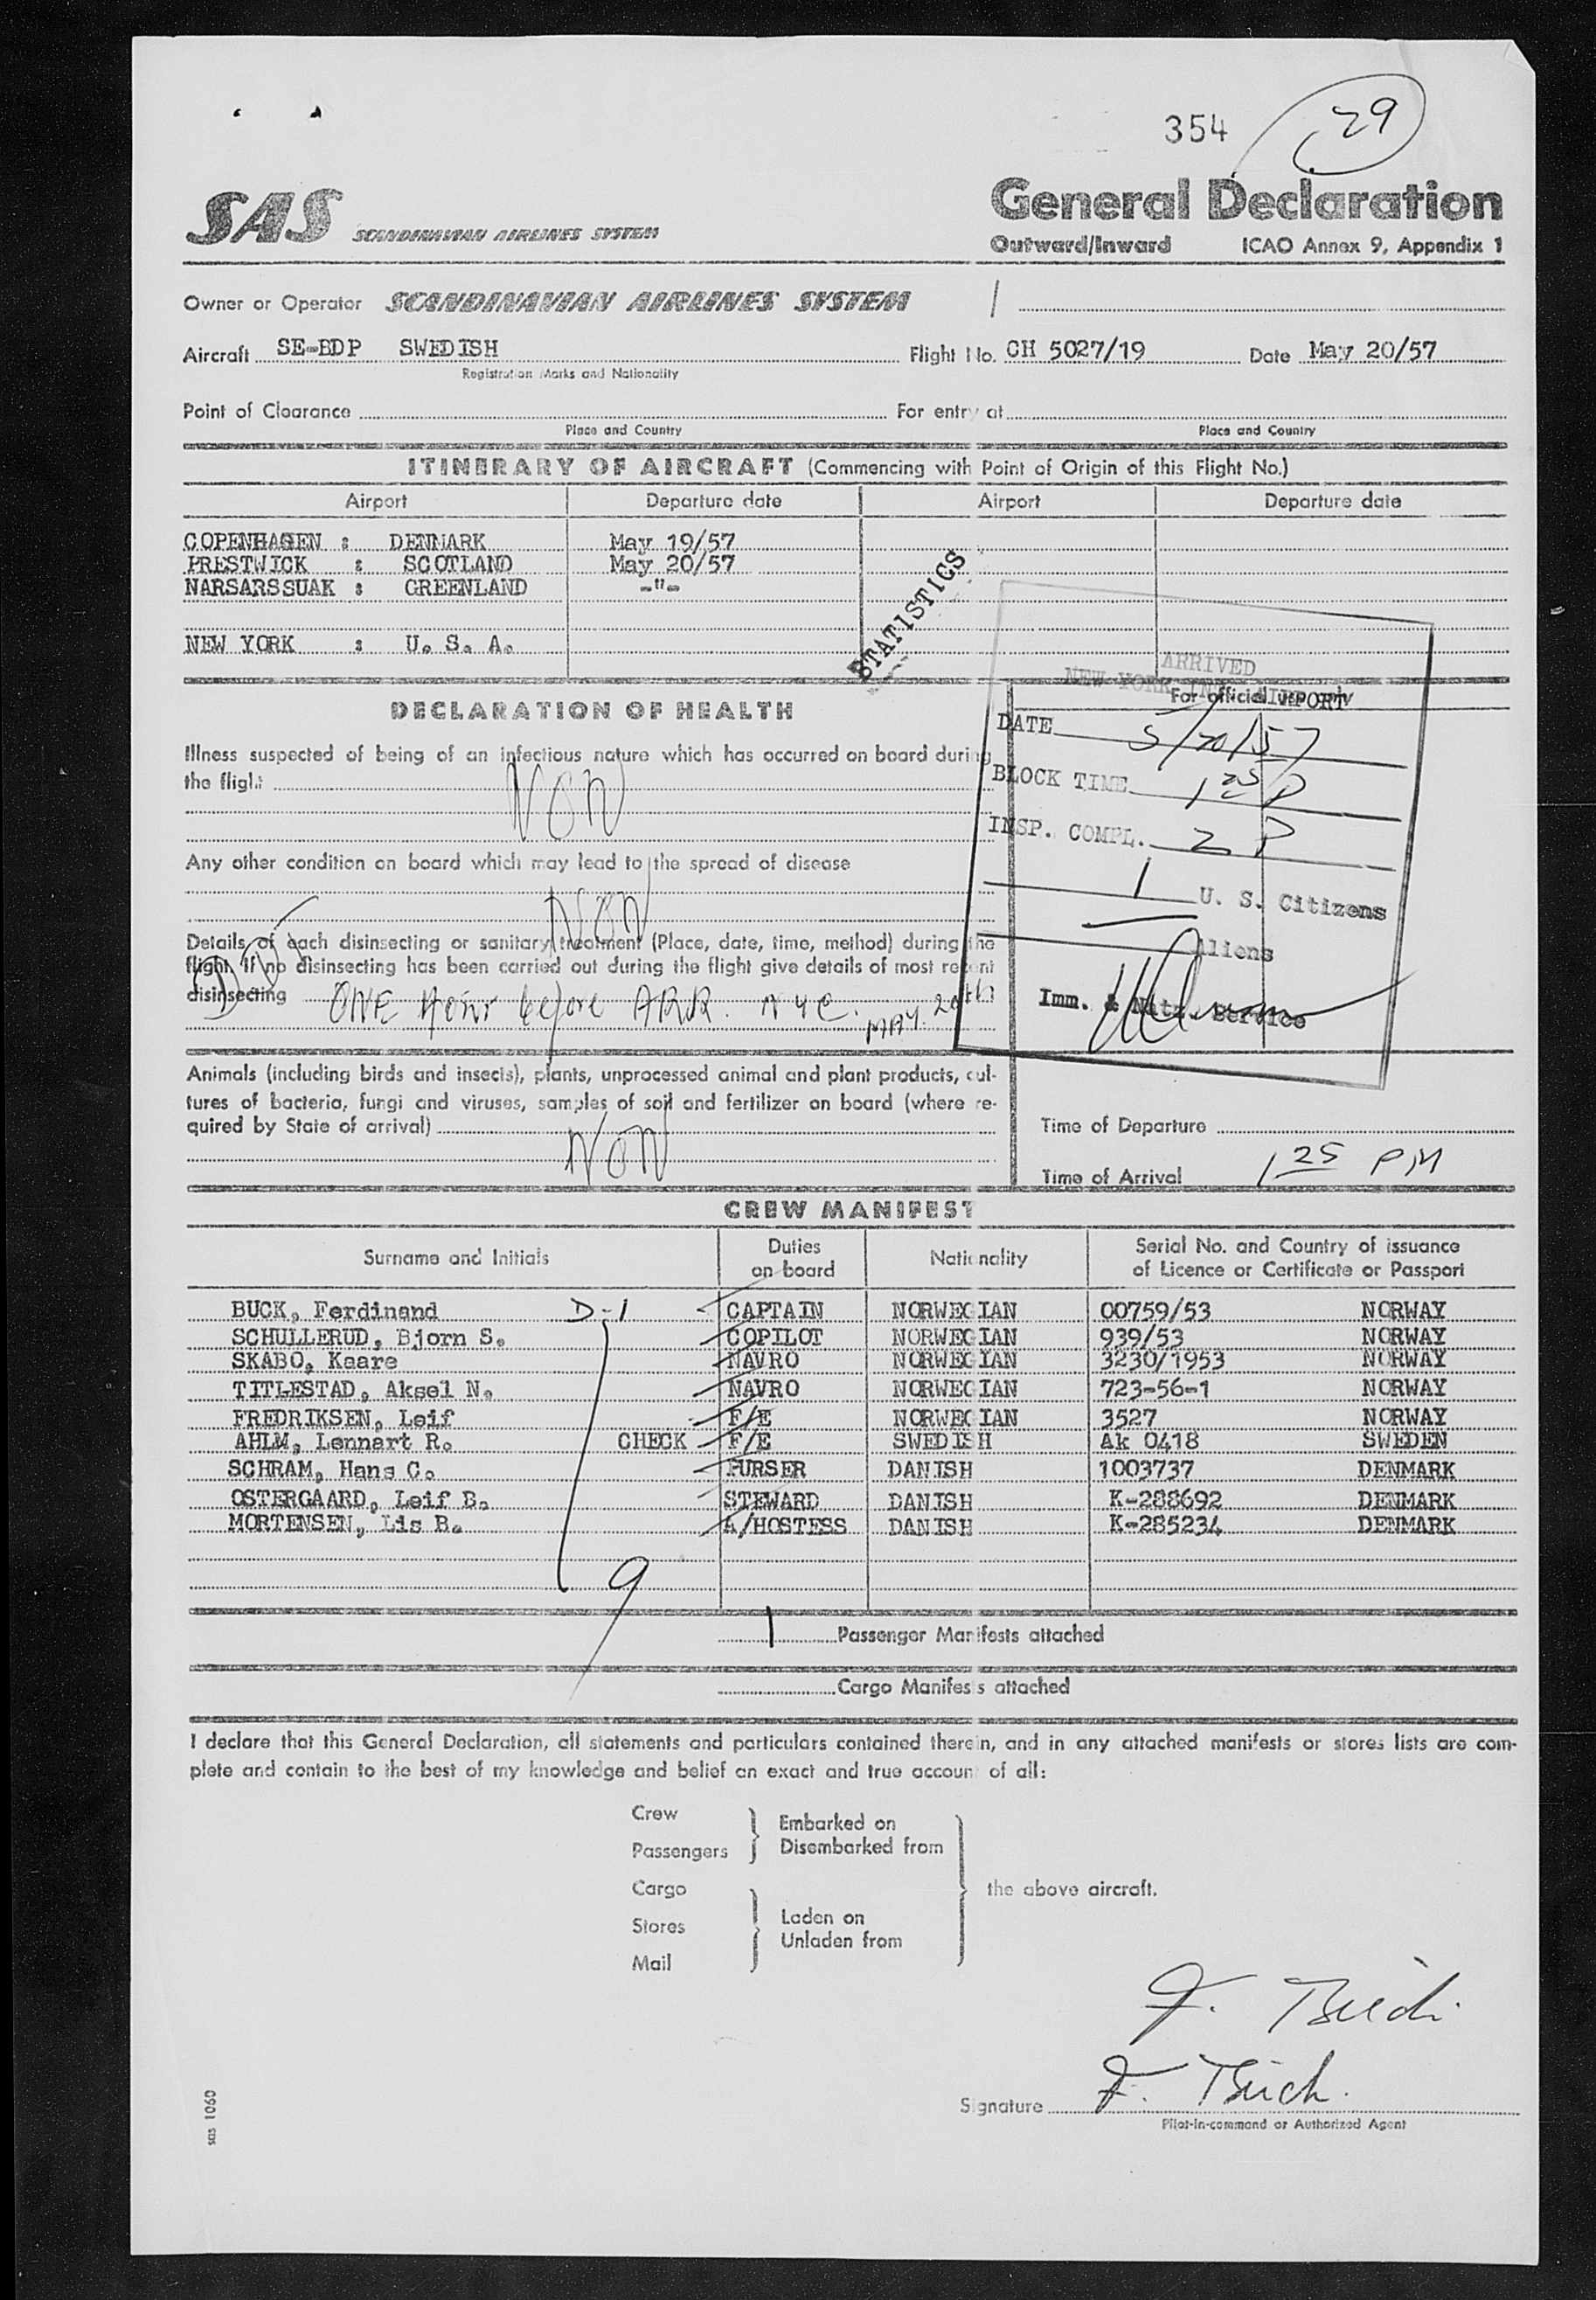 354 29
SAS SCANDINAVIAN AIRLINES SYSTEM
General Declaration
Outward/Inward ICAO Annex 9, Appendix 1
Owner or Operator SCANDINAVIAN AIRLINES SYSTEM
Aircraft SE-BDP SWEDISH Flight No. CH 5027/19 Date May 20/57
Registration Marks and Nationality
Point of Clearance For entry at
Place and Country Place and Country
ITINERARY OF AIRCRAFT (Commencing with Point of Origin of this Flight No.)
Airport Departure date Airport Departure date
COPENHAGEN : DENMARK May 19/57
PRESTWICK : SCOTLAND May 20/57
NARSARSSUAK : GREENLAND -"-
NEW YORK : U. S. A.
STATISTICS
DECLARATION OF HEALTH
Illness suspected of being of an infectious nature which has occurred on board during
the flight
NON
Any other condition on board which may lead to the spread of disease
NON
Details of each disinsecting or sanitary treatment (Place, date, time, method) during the
flight. If no disinsecting has been carried out during the flight give details of most recent
disinsecting ONE Hour before ARR. NYC. MAY. 20th
Animals (including birds and insects), plants, unprocessed animal and plant products, cul-
tures of bacteria, fungi and viruses, samples of soil and fertilizer on board (where re-
quired by State of arrival)
NON
For official use only
ARRIVED
NEW YORK INT. AIRPORT
DATE 5/20/57
BLOCK TIME 1 25 P
INSP. COMPL. 2 P
1 U. S. Citizens
Aliens
Imm. & Natz. Service
Time of Departure
Time of Arrival 1 25 PM
CREW MANIFEST
Surname and Initials Duties on board Nationality Serial No. and Country of issuance of Licence or Certificate or Passport
BUCK, Ferdinand D-1 CAPTAIN NORWEGIAN 00759/53 NORWAY
SCHULLERUD, Bjorn S. COPILOT NORWEGIAN 939/53 NORWAY
SKABO, Kaare NAVRO NORWEGIAN 3230/1953 NORWAY
TITLESTAD, Aksel N. NAVRO NORWEGIAN 723-56-1 NORWAY
FREDRIKSEN, Leif F/E NORWEGIAN 3527 NORWAY
AHLM, Lennart R. CHECK F/E SWEDISH Ak 0418 SWEDEN
SCHRAM, Hans C. PURSER DANISH 1003737 DENMARK
OSTERGAARD, Leif B. STEWARD DANISH K-288692 DENMARK
MORTENSEN, Lis B. A/HOSTESS DANISH K-285234 DENMARK
9
1 Passenger Manifests attached
Cargo Manifests attached
I declare that this General Declaration, all statements and particulars contained therein, and in any attached manifests or stores lists are com-
plete and contain to the best of my knowledge and belief an exact and true account of all:
Crew
Passengers
Embarked on
Disembarked from
Cargo
Stores
Mail
Laden on
Unladen from
the above aircraft.
F. Buck
F. Buck.
Signature
Pilot-in-command or Authorized Agent
sas 1060